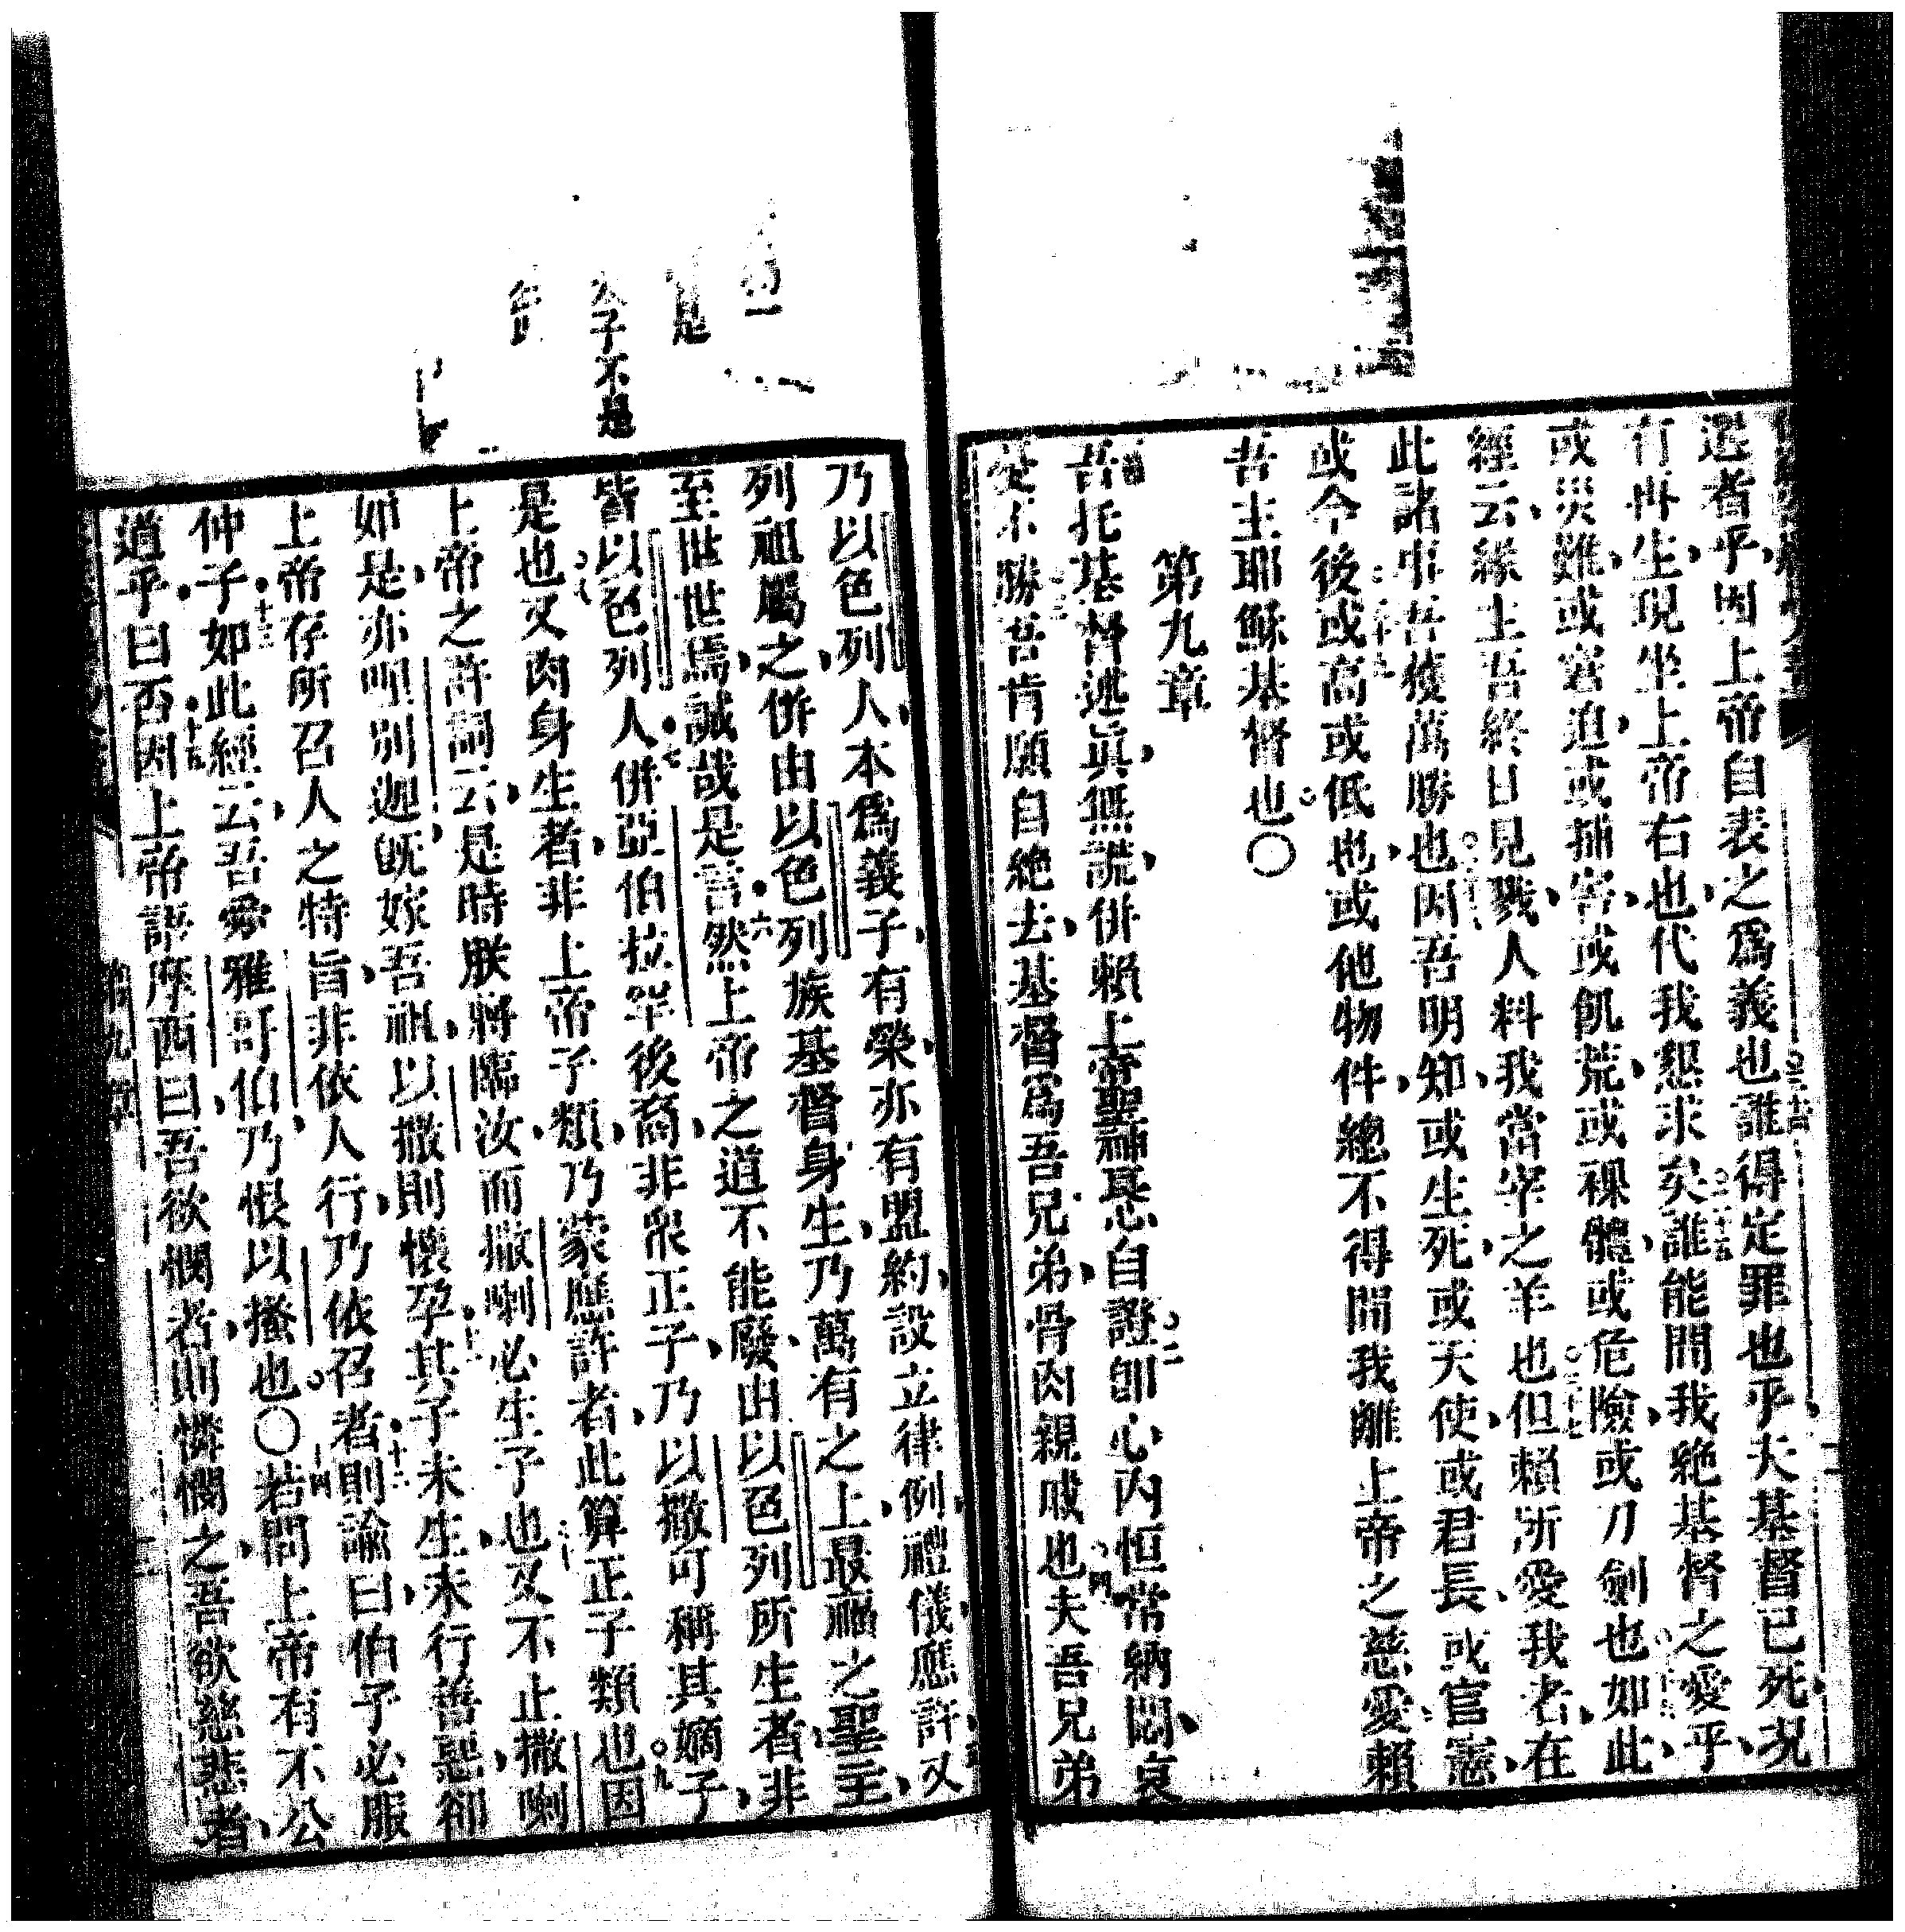 選者乎因上帝自表之爲義也誰得定罪也乎夫基督已死況
有再生現坐上帝右也代我懇求矣誰能間我絶基督之愛乎
或災難或窘迫或捕害或飢荒或裸體或危險或刀劍也如此
經云緣主吾終日見戮人料我當宰之羊也但賴所愛我者在
此諸事吾獲萬勝也因吾明知或生死或天使或君長或官憲
或今後或高或低也或他物件總不得間我離上帝之慈愛賴
吾主耶穌基督也〇
第九章
吾托基督述眞無謊併賴上帝聖神恩自證卽心內恒常納悶哀
受不勝吾肯願自絶去基督爲吾兄弟骨肉親戚也夫吾兄弟
乃以色列人本爲義子有榮亦有盟約設立律例禮儀應許又
列祖屬之併由以色列族基督身生乃萬有之上最福之聖主
至世世焉誠哉是言然上帝之道不能廢由以色列所生者非
皆以色列人併亞伯拉罕後裔非衆正子乃以撒可稱其嫡子
是也又肉身生者非上帝子類乃蒙應許者此算正子類也因
上帝之許詞云是時朕將臨汝而撒喇必生子也又不止撒喇
如是亦哩別迦旣嫁吾祖以撒則懷孕其子未生未行善惡卻
上帝存所召人之特旨非依人行乃依召者則諭曰伯子必服
仲子如此經云吾愛雅哥伯乃恨以搔也〇若問上帝有不公
道乎曰否因上帝語摩西曰吾欲憫者則憐憫之吾欲慈悲者
子不是
是
一